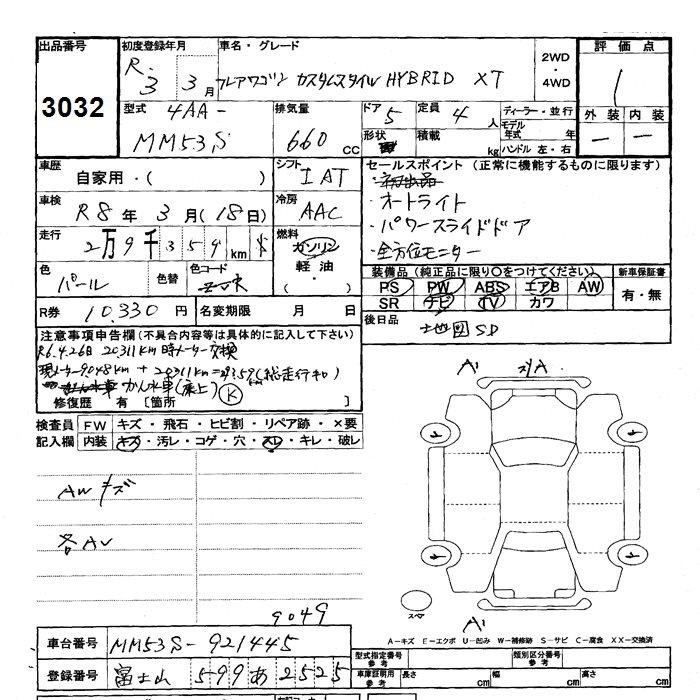 出品番号
3032
初度登録年月
R.3 3月
車名・グレード
フレアワゴン カスタムスタイル HYBRID XT
2WD
・
4WD
評価点
1
外装 内装
型式
4AA-
MM53S
排気量
660 cc
ドア 5
形状
定員 4 人
積載 kg
ディーラー・並行
モデル
年式 年
ハンドル 左・右
車歴
自家用・( )
シフト
IAT
車検
R8年 3月(18日)
冷房
AAC
走行
2万9千359km
燃料
ガソリン
軽油・
( ・ )
色
パール
色替
色コード
セールスポイント (正常に機能するものに限ります)
・初出品
・オートライト
・パワースライドドア
・全方位モニター
装備品(純正品に限り○をつけてください)
PS PW ABS エアB AW
SR ナビ TV カワ
新車保証書
有・無
R券 10330円
名変期限 月 日
後日品
地図SD
注意事項申告欄(不具合内容等は具体的に記入して下さい)
R6.4.26日 20311km時メーター交換
現メーター9048km + 20311km=29359(総走行キロ)
かん水車(床上) K
修復歴 有 〔箇所 〕
検査員 FW キズ・飛石・ヒビ割・リペア跡・×要
記入欄 内装 キズ・汚レ・コゲ・穴・スレ・キレ・破レ
AWキズ
各AU
9049
A'
A
スペア
A'
A-キズ E-エクボ U-凹み W-補修跡 S-サビ C-腐食 XX-交換済
車台番号 MM53S-921445
登録番号 富士山 599 あ 2525
型式指定番号
参考
類別区分番号
参考
車庫証明用
参考
長さ cm 幅 cm 高さ cm